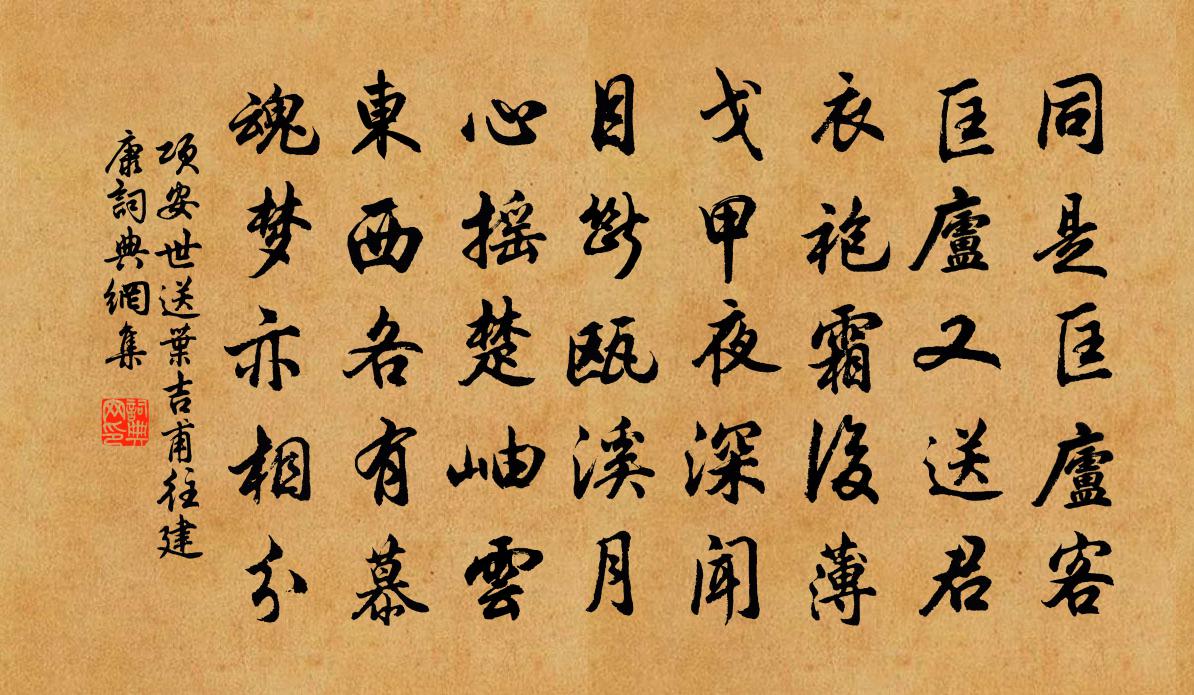 同是匡廬客
匡廬又送君
衣袍霜後薄
戈甲夜深聞
目斷甌溪月
心搖楚岫雲
東西各有慕
魂梦亦相分
項安世送葉吉甫往建
康詞典網集
詞典
网印